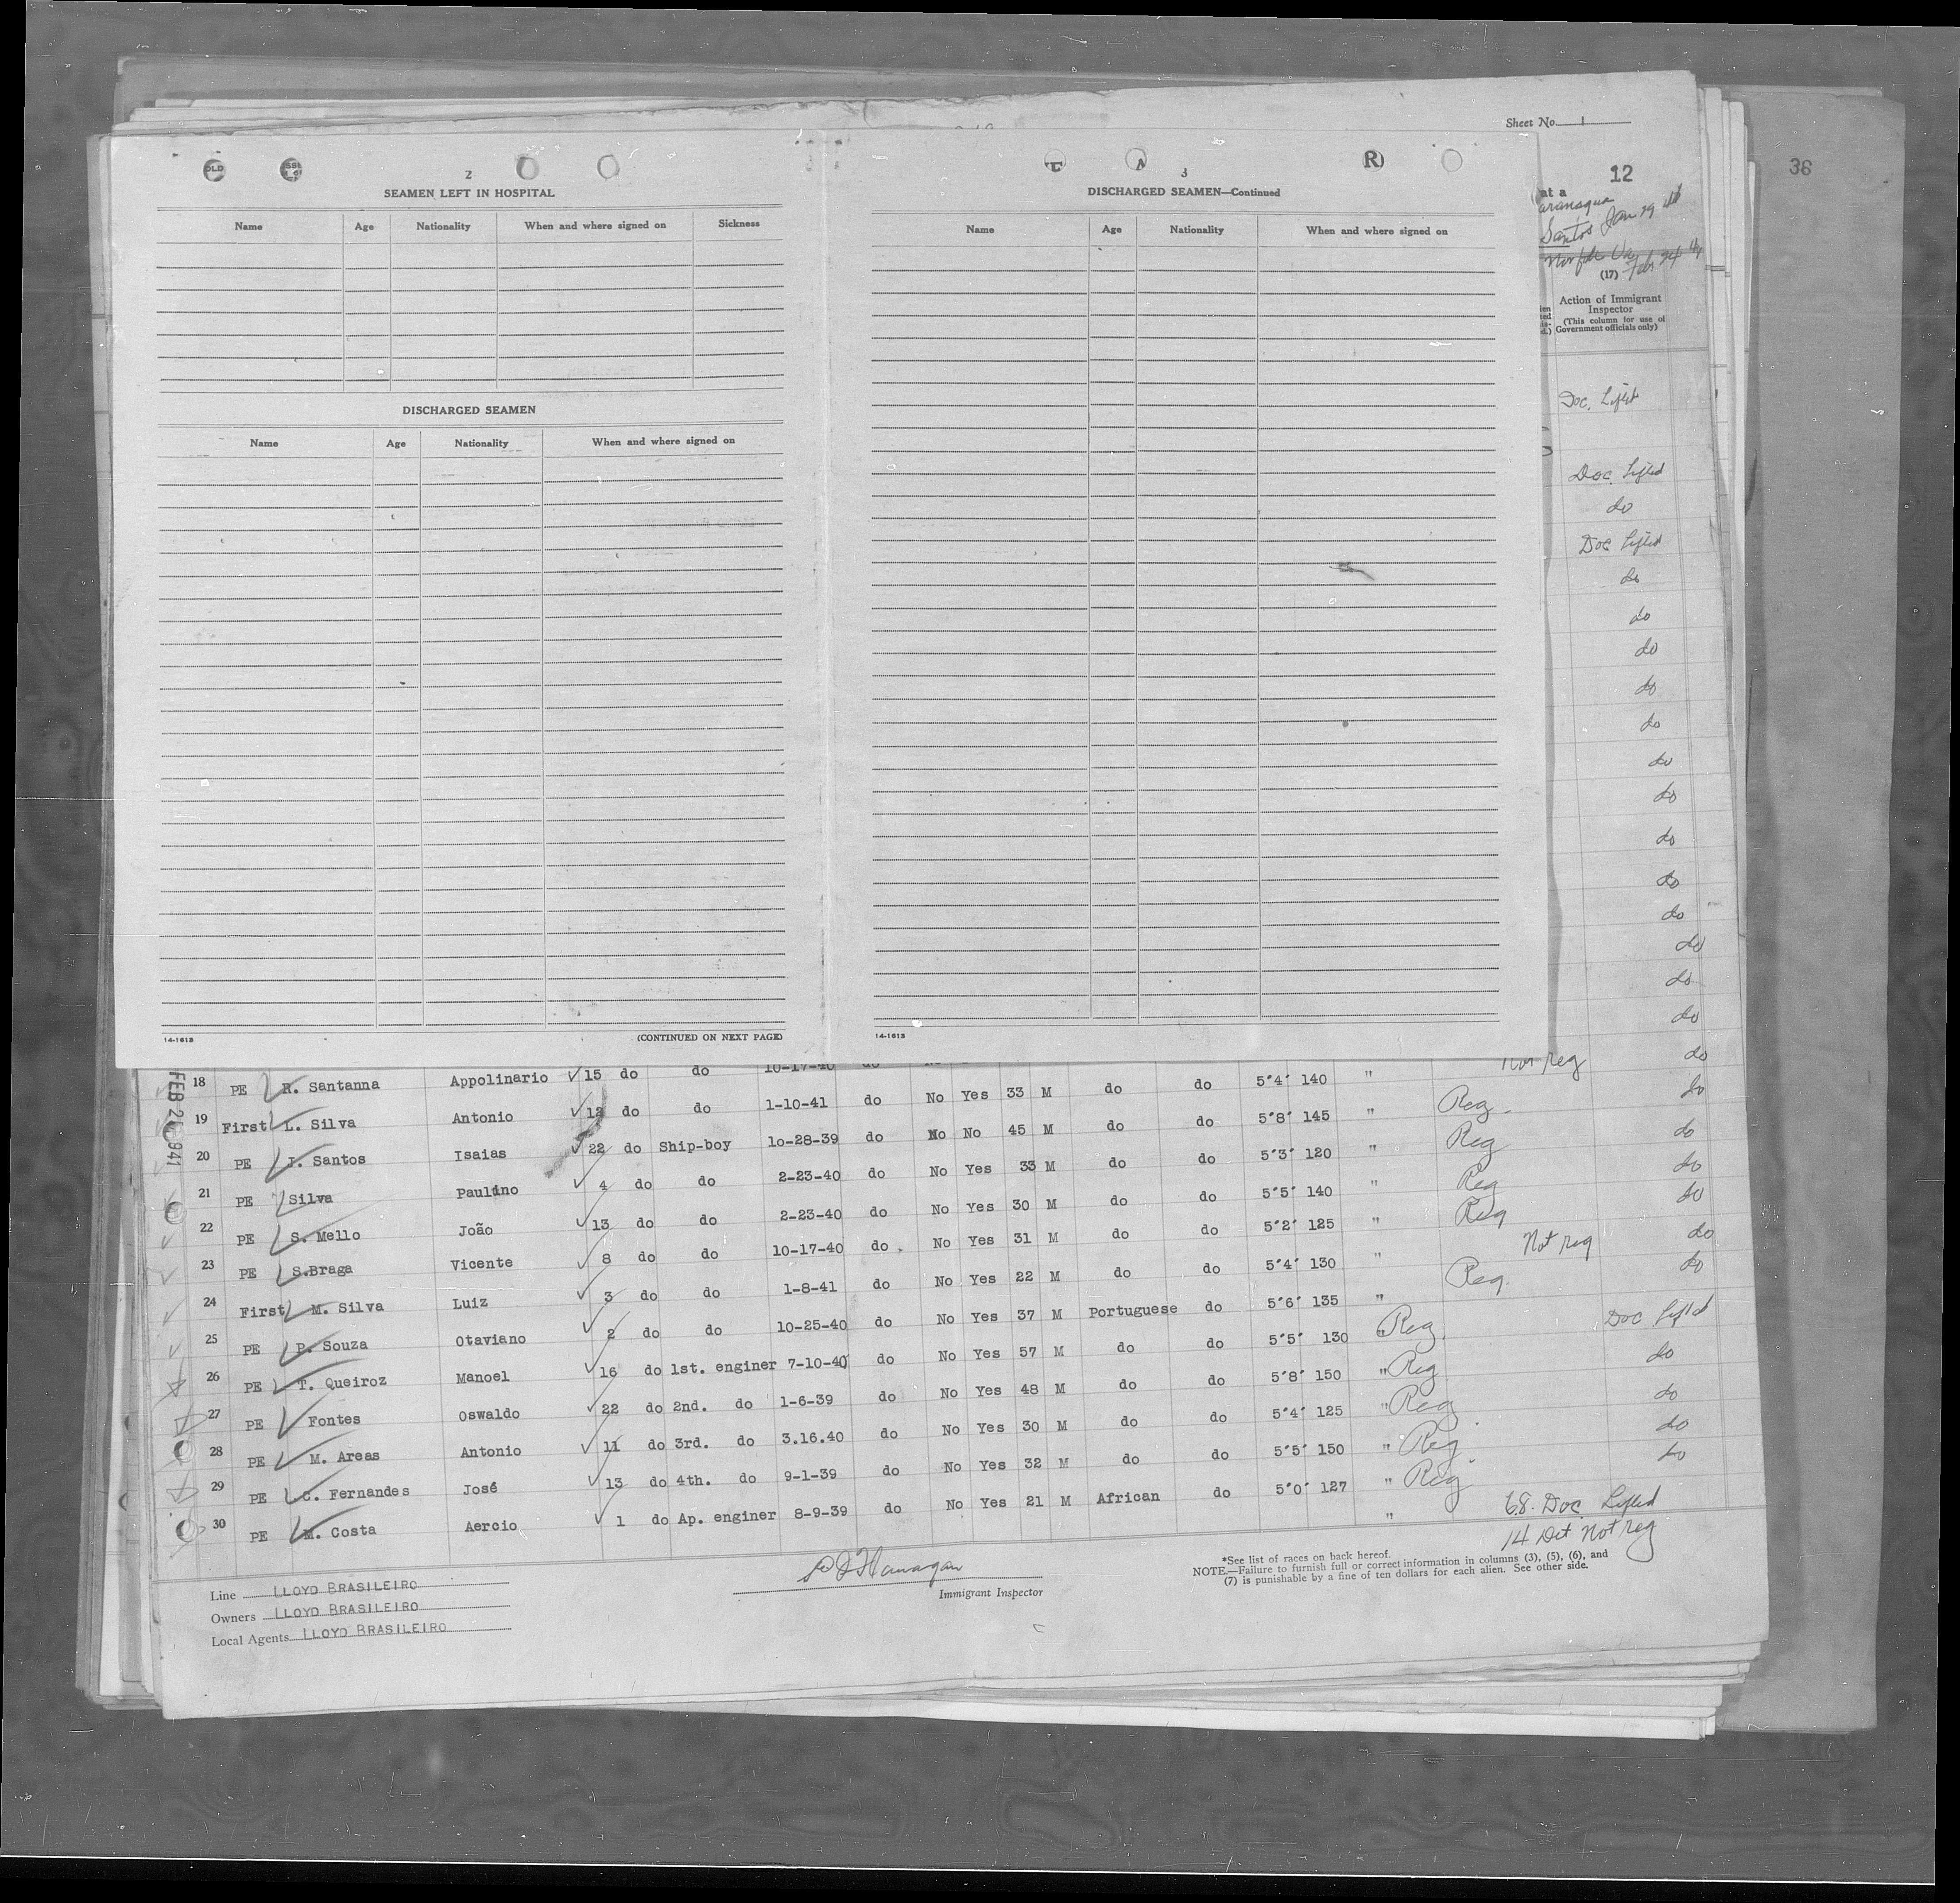 Sheet No. 1
12
38
2
SEAMEN LEFT IN HOSPITAL
Name Age Nationality When and where signed on Sickness
DISCHARGED SEAMEN
Name Age Nationality When and where signed on
14-1613 (CONTINUED ON NEXT PAGE)
3
DISCHARGED SEAMEN—Continued
Name Age Nationality When and where signed on
14-1613
at a
aranagua
Santos Jan 29
Norfolk Va Feb 24
(17)
Action of Immigrant
Inspector
(This column for use of
Government officials only)
Doc. Lifted
Doc. Lifted
do
Doc Lifted
do
do
do
do
do
do
do
do
do
do
do
do
do
18 PE R. Santanna Appolinario 15 do do 10-17-40 do No Yes 33 M do do 5'4' 140 " Not reg do
19 First L. Silva Antonio 12 do do 1-10-41 do No No 45 M do do 5'8' 145 " Reg. do
20 PE I. Santos Isaias 22 do Ship-boy 10-28-39 do No Yes 33 M do do 5'3' 120 " Reg do
21 PE Silva Paulino 4 do do 2-23-40 do No Yes 30 M do do 5'5' 140 " Reg do
22 PE S. Mello João 13 do do 2-23-40 do No Yes 31 M do do 5'2' 125 " Reg do
23 PE S.Braga Vicente 8 do do 10-17-40 do No Yes 22 M do do 5'4' 130 " Not reg do
24 First M. Silva Luiz 3 do do 1-8-41 do No Yes 37 M Portuguese do 5'6' 135 " Reg. do
25 PE P. Souza Otaviano 2 do do 10-25-40 do No Yes 57 M do do 5'5' 130 " Reg. Doc Lifted
26 PE T. Queiroz Manoel 16 do 1st. enginer 7-10-40 do No Yes 48 M do do 5'8' 150 " Reg do
27 PE Fontes Oswaldo 22 do 2nd. do 1-6-39 do No Yes 30 M do do 5'4' 125 " Reg do
28 PE M. Areas Antonio 11 do 3rd. do 3.16.40 do No Yes 32 M do do 5'5' 150 " Reg do
29 PE C. Fernandes José 13 do 4th. do 9-1-39 do No Yes 21 M African do 5'0' 127 " Reg do
30 PE M. Costa Aercio 1 do Ap. enginer 8-9-39 do "
68. Doc Lifted
14 Det Not reg
Line LLOYD BRASILEIRO
Owners LLOYD BRASILEIRO
Local Agents LLOYD BRASILEIRO
Immigrant Inspector
*See list of races on back hereof.
NOTE.—Failure to furnish full or correct information in columns (3), (5), (6), and
(7) is punishable by a fine of ten dollars for each alien. See other side.